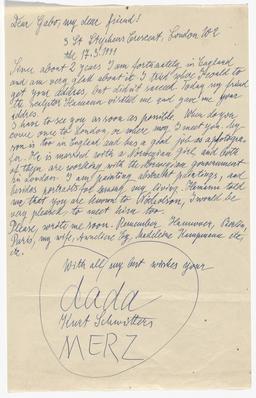 Dear Gabo, my dear friend!
3 St. Stephens Crescent, London W2
the 17.3.1944
Since about 2 years I am fortunately in England
and am very glad about it. I tried where I could to
get your address, but didn't succeed. Today my friend
the sculptor Hamann visited me and gave me your
address.
I have to see you as soon as possible. When do you
come once to London, or where may I meet you. My
son is too in England and has a good job as a photogra-
pher. He is married with a Norwegian girl and both
of them are working with the Norwegian government
in London. I am painting abstract paintings, and
besides portraits for earning my living. Hamann told
me that you are known to Nicholson, I would be
very pleased, to meet him too.
Please, wrote me soon. Remember Hannover, Berlin,
Paris, my wife, Anneliese Tag, Madeleine Kampmann etc,
etc.
With all my best wishes your
dada
Kurt Schwitters
MERZ